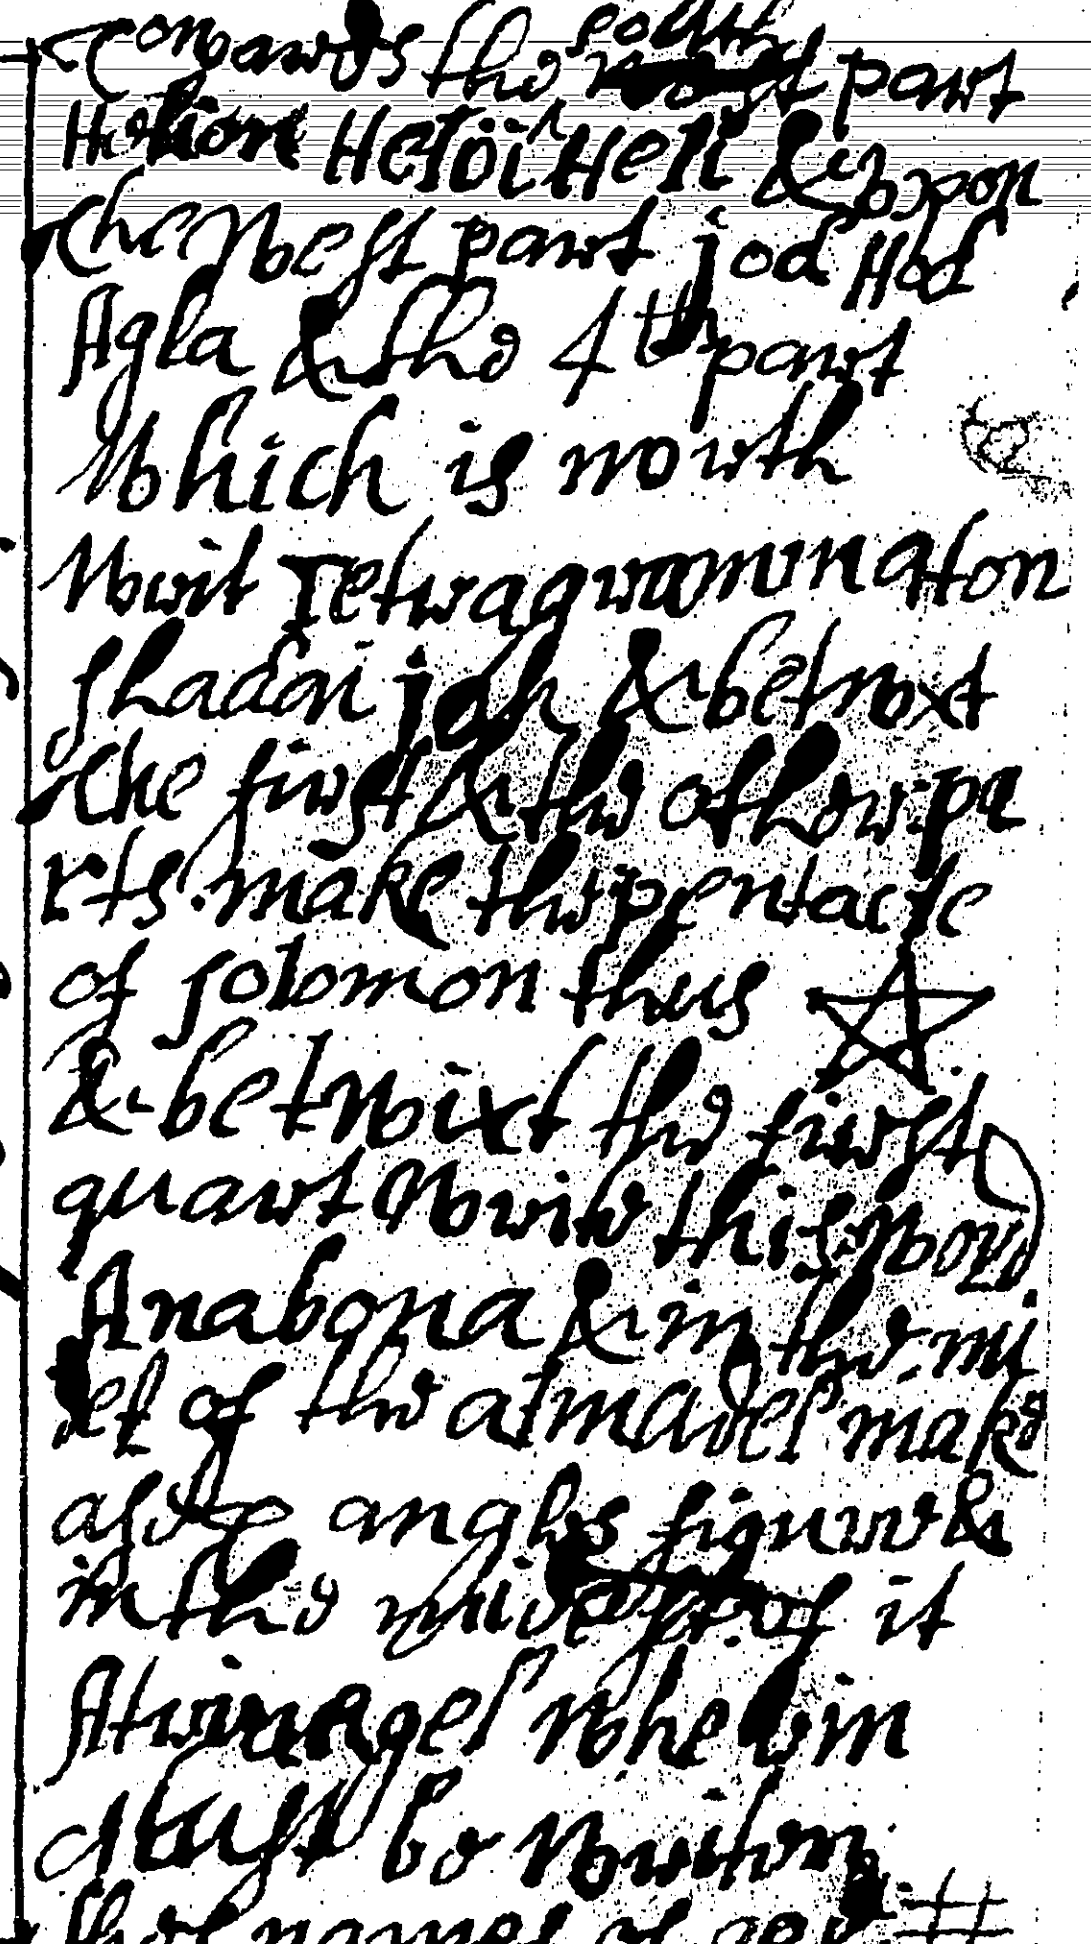 Towards the south part
Helion Heloi Heli & vpon
the West part jod Hod
Agla & the 4th part
Which is north
Writ Tetragrammaton
shadai jah & betwxt
the first & the other pa
rts make the pentacle
of solomon thus
& betwixt the first
quart Write this Word
Anabona & in the mi
est of the almadel make
a six angles figure &
in the midest of it
A triangel wherin
Must be writen
thes names of god #